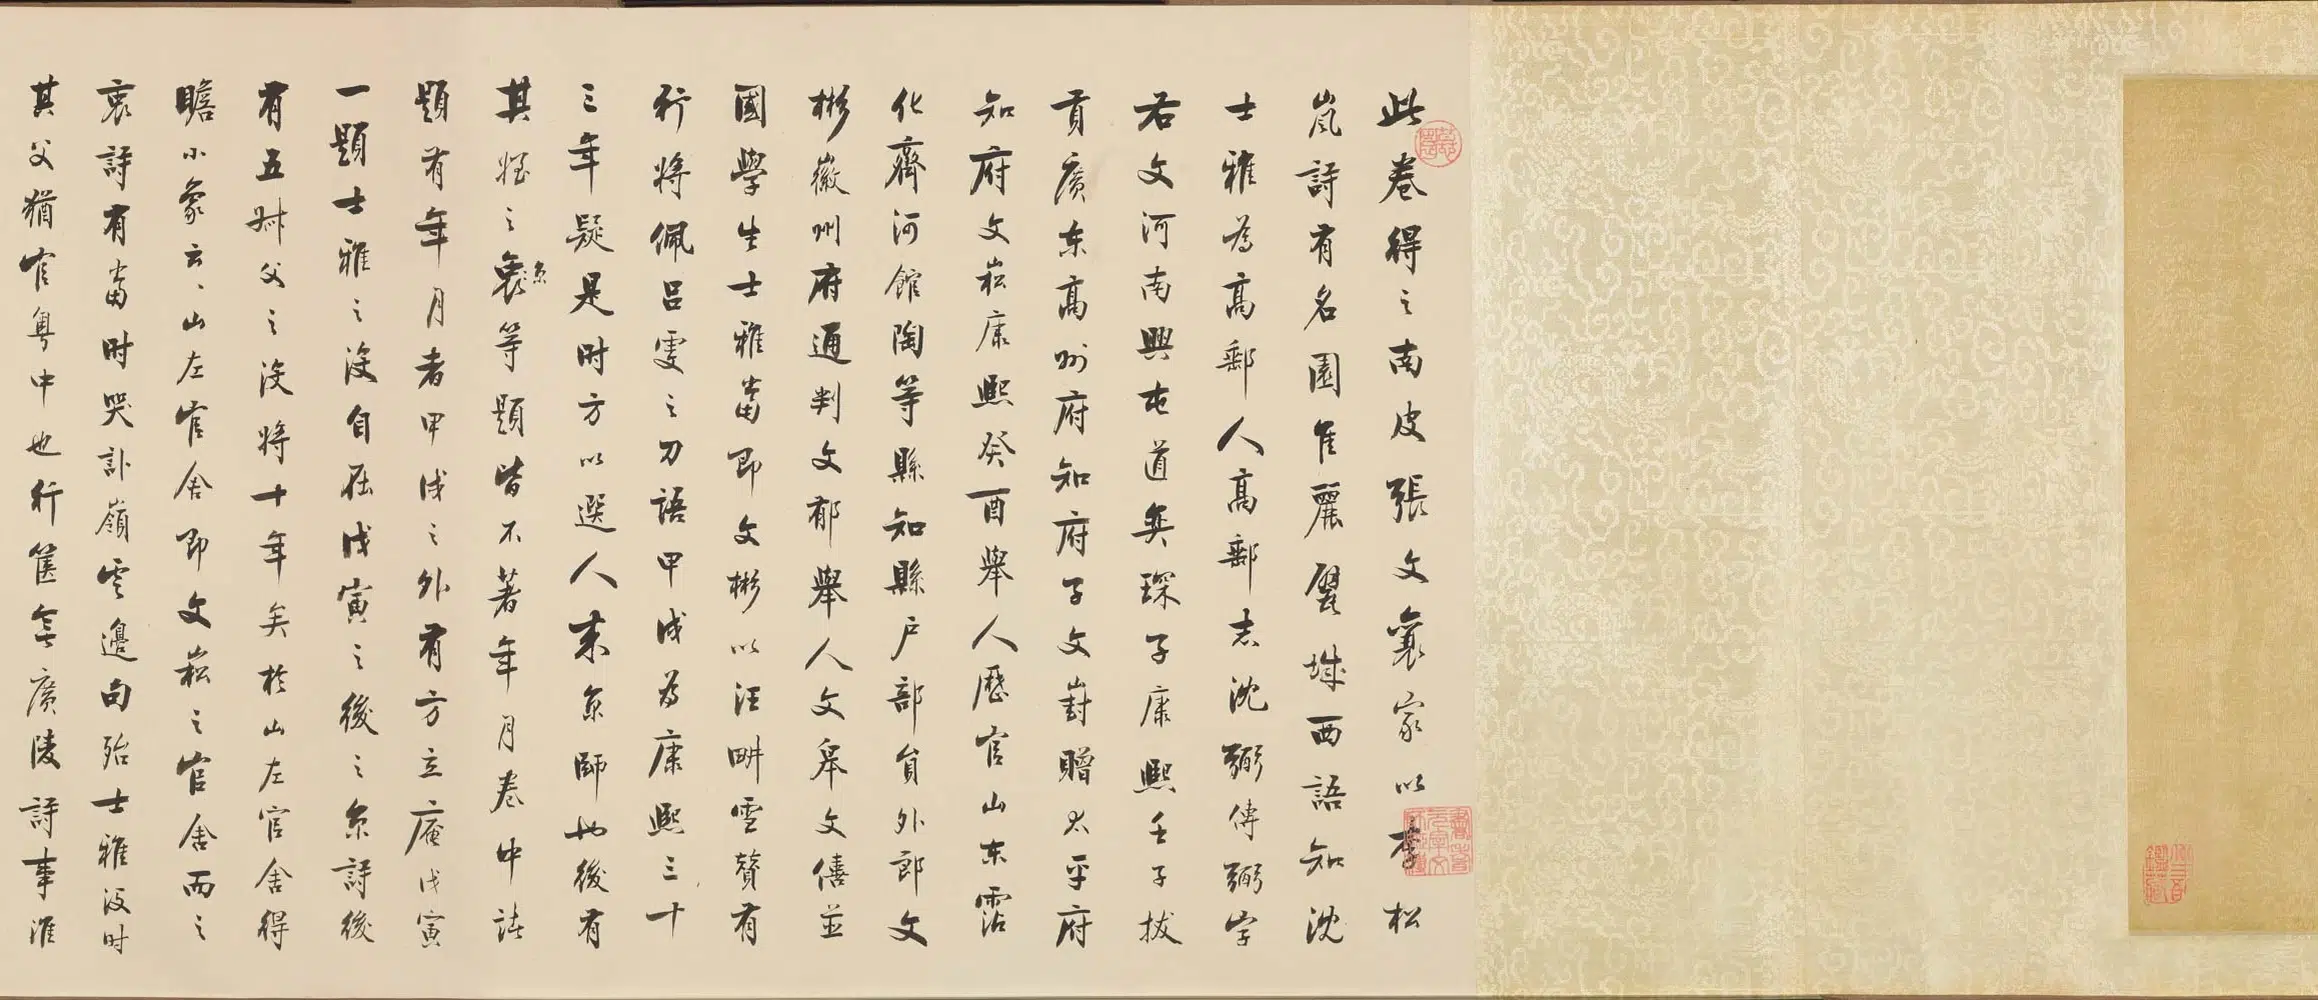 此卷得之南皮張文襄家以李松
嵐詩有名園隹麗甓城西語知沈
士雅為高郵人高郵志沈弼傳弼字
右文河南興屯道矣琛子康熙壬子拔
貢廣东高州府知府子文崶贈太平府
知府文崧康熙癸酉舉人歷官山东霑
化齊河館陶等縣知縣戶部員外郎文
彬徽州府通判文郁舉人文皋文僖並
國學生士雅當即文彬以汪畊雲贊有
行將佩呂雯之刀語甲戌為康熙三十
三年疑是时方以選人來京師也後有
其姪之裛等題皆不著年月卷中諸
題有年月者甲戌之外有方立庵戊寅
一題士雅之沒自在戊寅之後之京詩後
有五叔父之沒將十年矣於山左官舍得
瞻小象云云山左官舍即文崧之官舍而之
裛詩有當时哭訃嶺雲邊句殆士雅沒时
其父猶官粵中也行篋無廣陵詩事淮